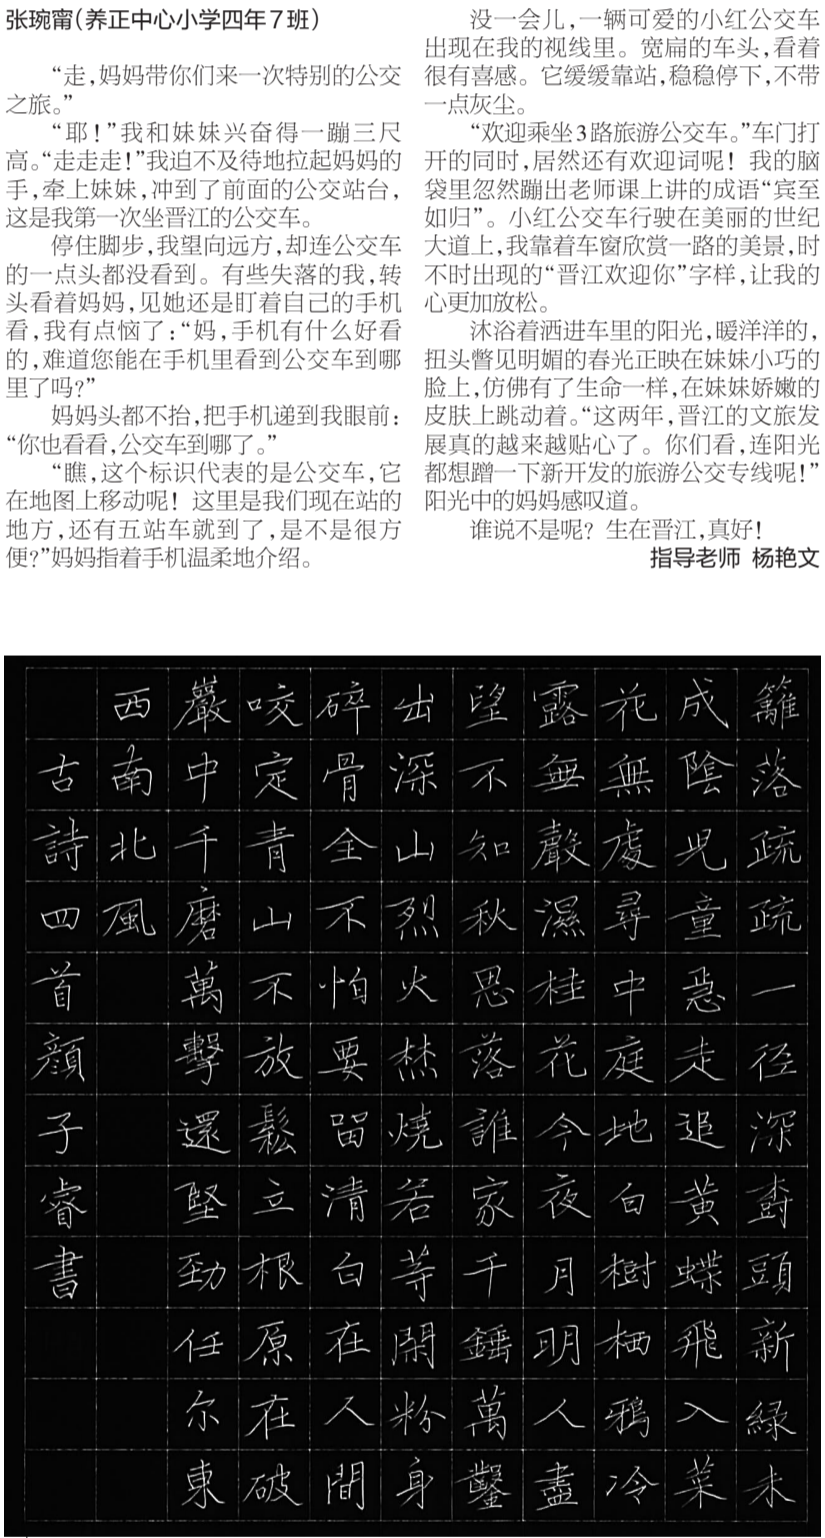 张琬甯(养正中心小学四年7班)
“走,妈妈带你们来一次特别的公交
之旅。”
“耶!”我和妹妹兴奋得一蹦三尺
高。“走走走!”我迫不及待地拉起妈妈的
手,牵上妹妹,冲到了前面的公交站台,
这是我第一次坐晋江的公交车。
停住脚步,我望向远方,却连公交车
的一点头都没看到。有些失落的我,转
头看着妈妈,见她还是盯着自己的手机
看,我有点恼了:“妈,手机有什么好看
的,难道您能在手机里看到公交车到哪
里了吗?”
妈妈头都不抬,把手机递到我眼前:
“你也看看,公交车到哪了。”
“瞧,这个标识代表的是公交车,它
在地图上移动呢!这里是我们现在站的
地方,还有五站车就到了,是不是很方
便?”妈妈指着手机温柔地介绍。
没一会儿,一辆可爱的小红公交车
出现在我的视线里。宽扁的车头,看着
很有喜感。它缓缓靠站,稳稳停下,不带
一点灰尘。
“欢迎乘坐3路旅游公交车。”车门打
开的同时,居然还有欢迎词呢!我的脑
袋里忽然蹦出老师课上讲的成语“宾至
如归”。小红公交车行驶在美丽的世纪
大道上,我靠着车窗欣赏一路的美景,时
不时出现的“晋江欢迎你”字样,让我的
心更加放松。
沐浴着洒进车里的阳光,暖洋洋的,
扭头瞥见明媚的春光正映在妹妹小巧的
脸上,仿佛有了生命一样,在妹妹娇嫩的
皮肤上跳动着。“这两年,晋江的文旅发
展真的越来越贴心了。你们看,连阳光
都想蹭一下新开发的旅游公交专线呢!”
阳光中的妈妈感叹道。
谁说不是呢?生在晋江,真好!
指导老师 杨艳文
籬落疏疏一径深樹頭新綠未
成陰兒童急走追黃蝶飛入菜
花無處尋中庭地白樹栖鴉冷
露無聲濕桂花今夜月明人盡
望不知秋思落誰家千錘萬鑿
出深山烈火焚燒若等閑粉身
碎骨全不怕要留清白在人間
咬定青山不放鬆立根原在破
巖中千磨萬擊還堅勁任尔東
西南北風
古詩四首顏子睿書